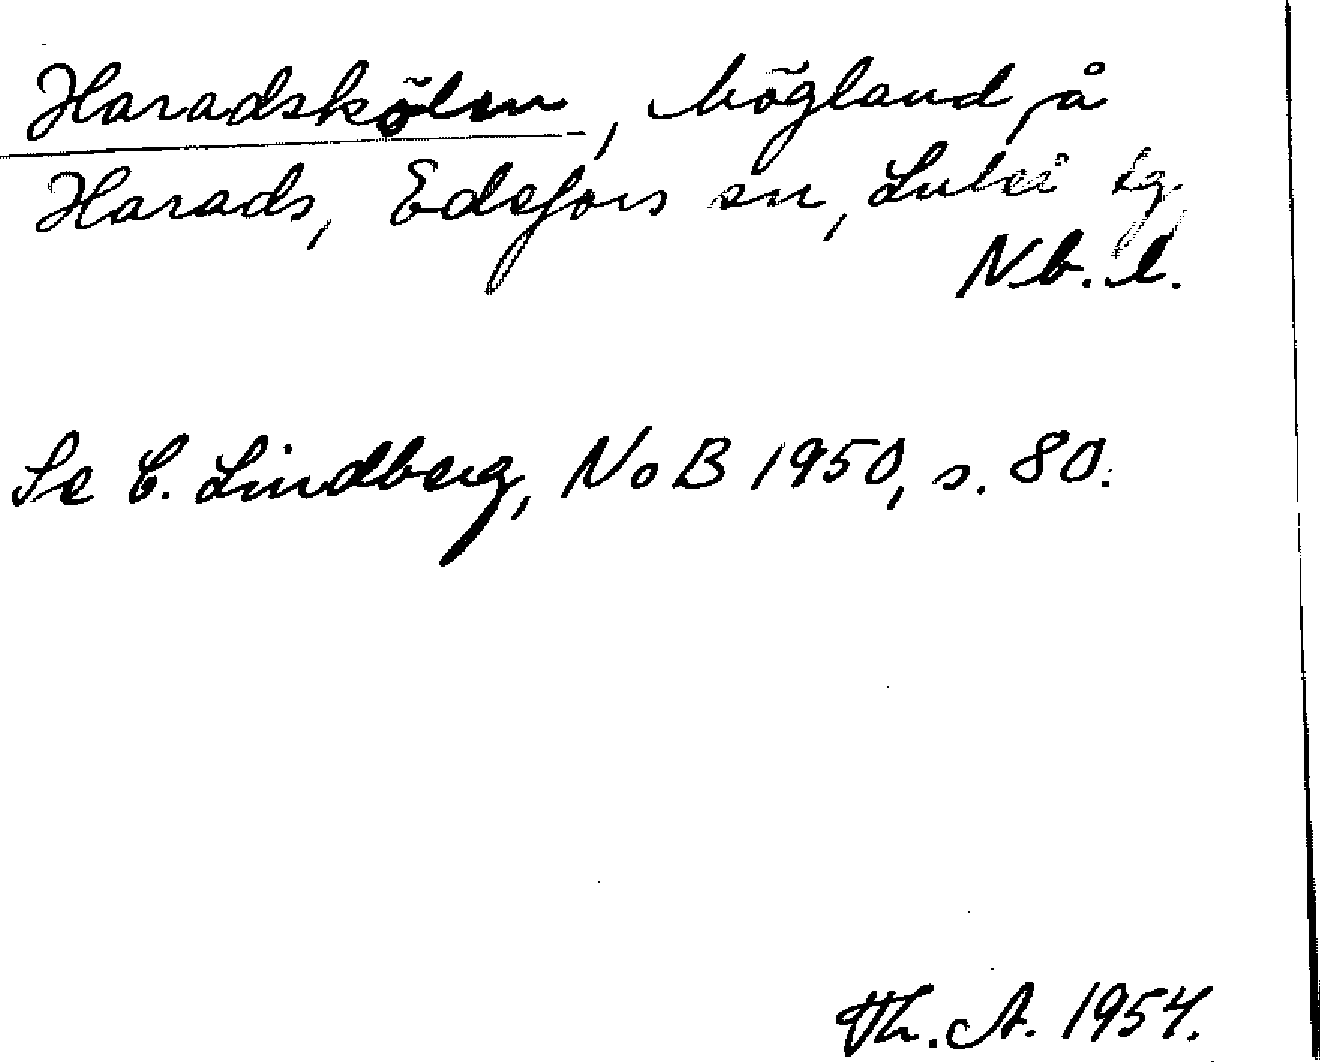 Haradskölen, högland på
Harads, Edefors sn, Luleå tg
Nb. l.
Se C. Lindberg, NoB 1950, s. 80.
Th. A. 1954.